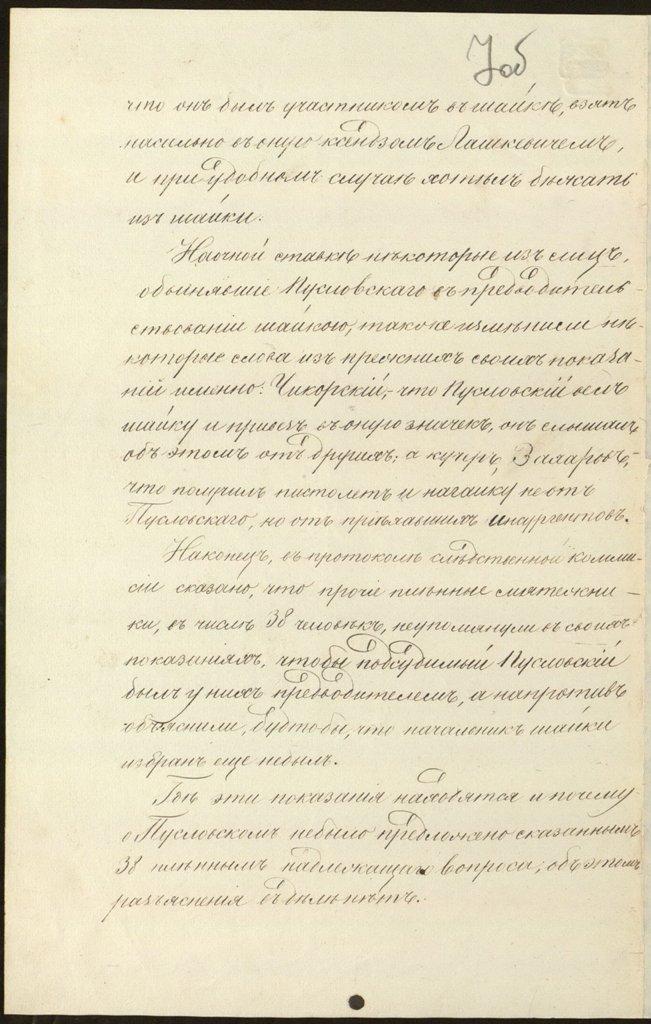 7об
что онъ былъ участникомъ въ шайкѣ, взятъ
насильно въ оную ксендзомъ Лашкевичемъ,
и при удобномъ случаѣ хотѣлъ бѣжать
изъ шайки.
На очной ставкѣ нѣкоторые изъ лицъ,
обвинявшіе Пусловскаго въ предводитель-
ствованіи шайкою, также измѣнили нѣ-
которые слова изъ прежнихъ своихъ показа-
ній именно: Чикорскій,- что Пусловскій велъ
шайку и привезъ въ оную значекъ, онъ слышалъ
объ этомъ отъ другихъ; а кучеръ Захаровъ,-
что получилъ пистолетъ и нагайку не отъ
Пусловскаго, но отъ пріѣхавшихъ инсургентовъ.
Наконецъ, въ протоколѣ слѣдственной комми-
сіи сказано, что прочіе плѣнные мятежни-
ки, въ числѣ 38 человѣкъ, неупомянули въ своихъ
показаніяхъ, чтобы подсудимый Пусловскій
былъ у нихъ предводителемъ, а напротивъ
объяснили, будтобы, что начальникъ шайки
избранъ еще небылъ.
Гдѣ эти показанія находятся и почему
о Пусловскомъ небыло предложено сказаннымъ
38 плѣннымъ надлежащаго вопроса; объ этомъ
разъясненія въ дѣлѣ нѣтъ.